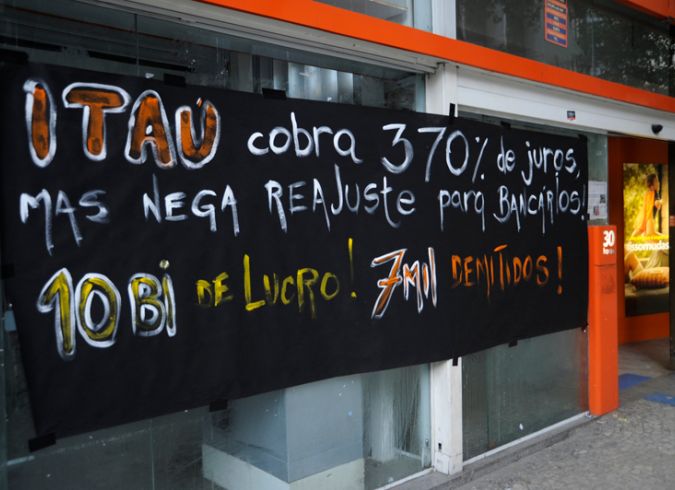 ITAÚ cobra 370% de juros,
MAS NEGA REAJUSTE PARA BANCÁRIOS!
10 BI DE LUCRO! 7 MIL DEMITIDOS!
30
issomuda